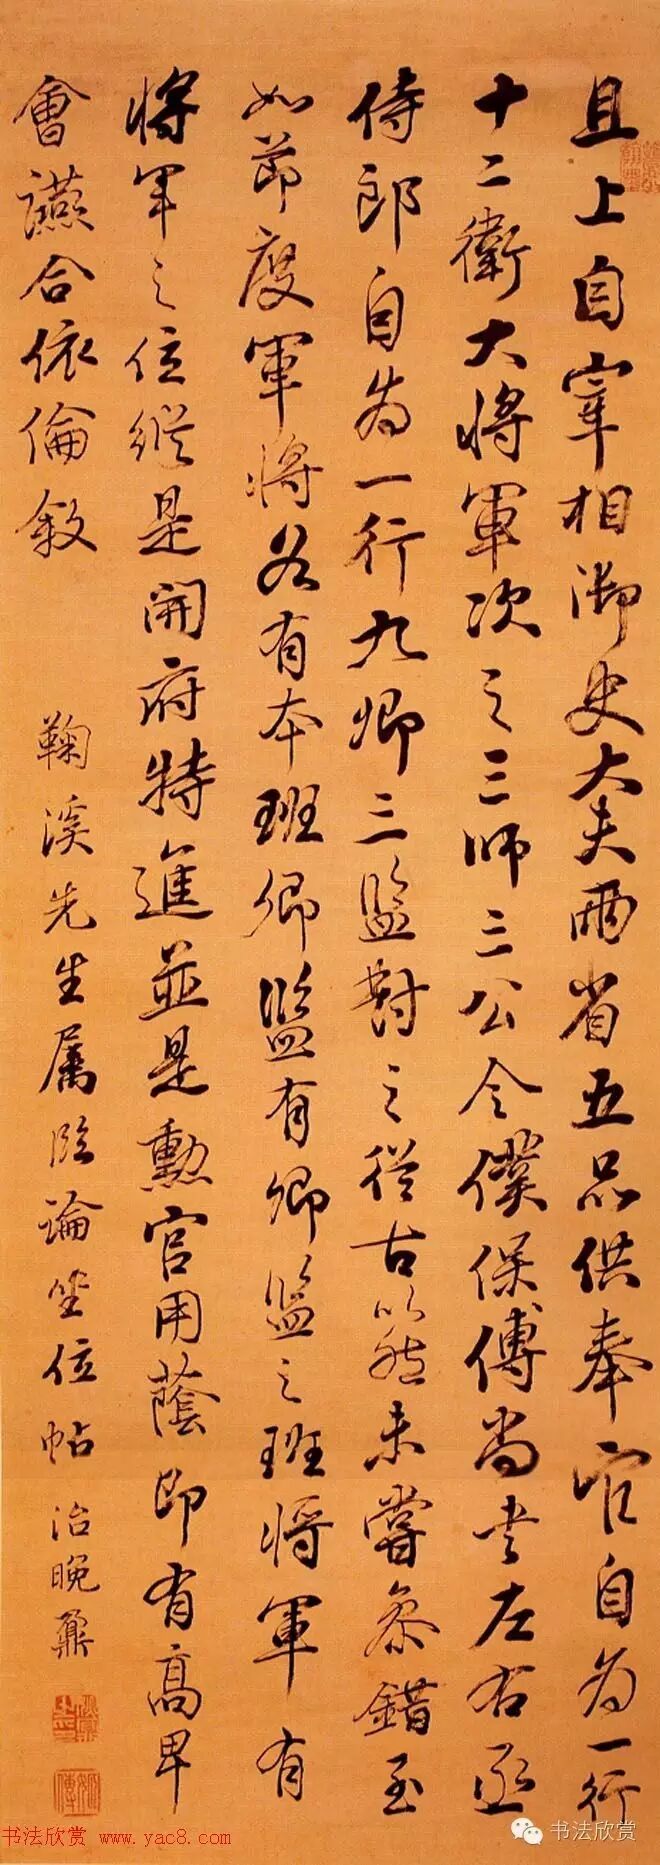 且上自宰相御史大夫兩省五品供奉官自為一行
十二衛大將軍次之三師三公令僕保傅尚書左右丞
侍郎自為一行九卿三監對之從古以然未嘗參錯至
如節度軍將各有本班卿監有卿監之班將軍有
將軍之位縱是開府特進並是勳官用蔭即有高卑
會讌合依倫敘
鞠溪先生属臨論坐位帖治晚鼐
书法欣赏 www.yac8.com
书法欣赏